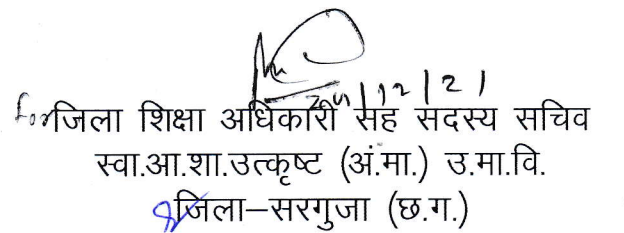 /12/21
For जिला शिक्षा अधिकारी सह सदस्य सचिव
स्वा.आ.शा.उत्कृष्ट (अं.मा.) उ.मा.वि.
जिला–सरगुजा (छ.ग.)